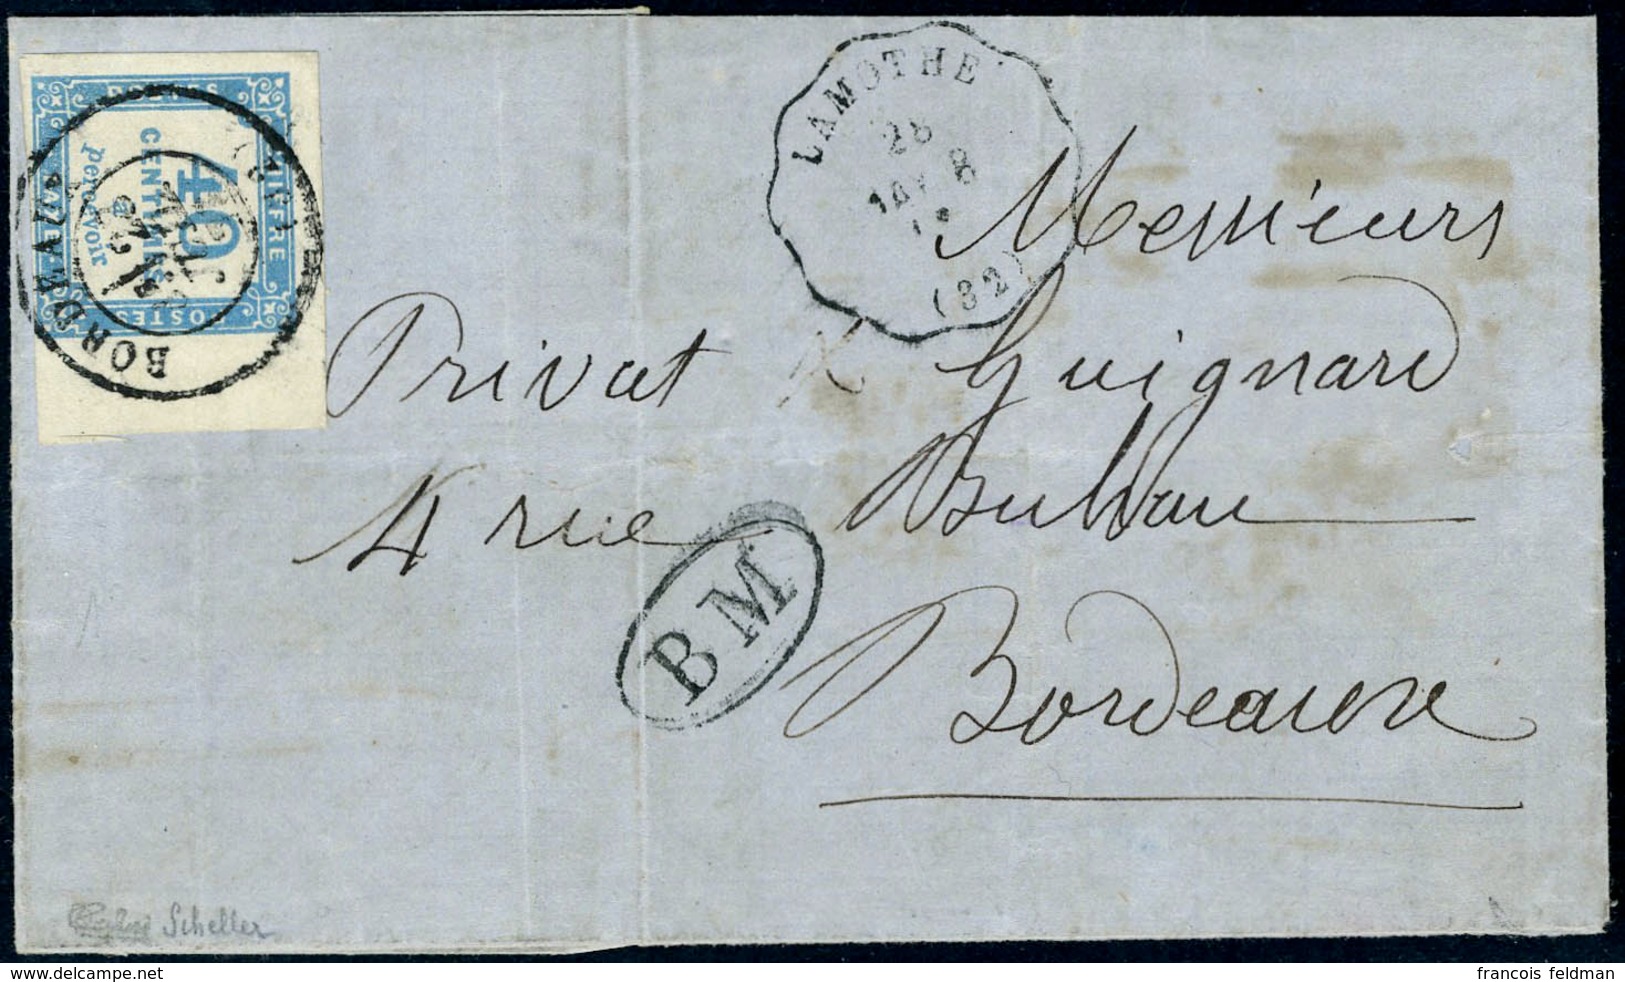 POSTES
CHIFFRE
40
CENTIMES
à
percevoir
POSTES
BORDEAUX
LAMOTHE
28
JANV
(32)
Messieurs
Privat Guignard
4 rue
Bordeaux
BM
Scheller
www.delcampe.net
francois feldman